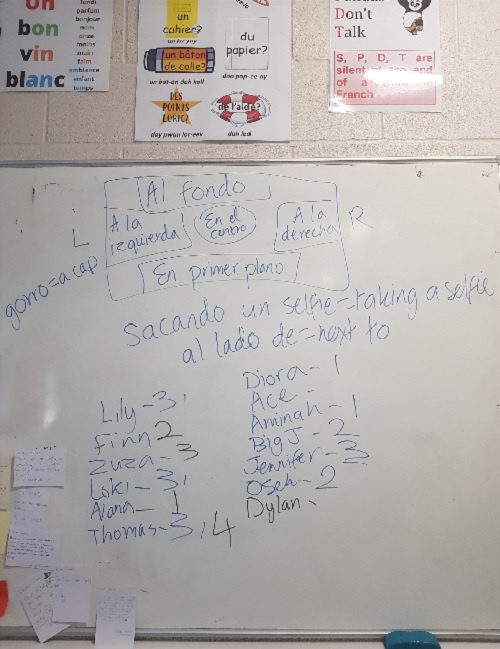 un
bon
vin
blanc
parfum
bonjour
moins
main
faim
ambiance
enfant
temps
un
cahier?
un bâton
de colle?
un bat-on duh koll
du
papier?
doo pap-ee-ay
DES
POINTS
day pwan lor-eek
de l'aide?
duh led
Don't
Talk
S, P, D, T are
silent
and
of a
French
Al fondo
L
A la
izquierda
En el
centro
A la
derecha
R
En primer plano
gorro=a cap
Sacando un selfie=taking a selfie
al lado de=next to
Lily-3
Finn 2
Zuza-3
Loki-3
Alana-1
Thomas-3, 4
Diora-1
Ace-
Aminah-1
Big J-2
Jennifer-3
Oseh-2
Dylan-